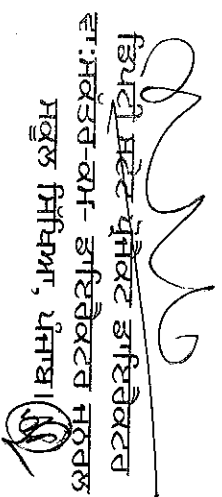 ਡਿਪਟੀ ਸਟੇਟ ਪ੍ਰੋਜੈਕਟ ਡਾਇਰੈਕਟਰ
ਦਾ:ਸਕੱਤਰ-ਕਮ- ਡਾਇਰੈਕਟਰ ਜਨਰਲ
ਸਕੂਲ ਸਿੱਖਿਆ, ਪੰਜਾਬ।